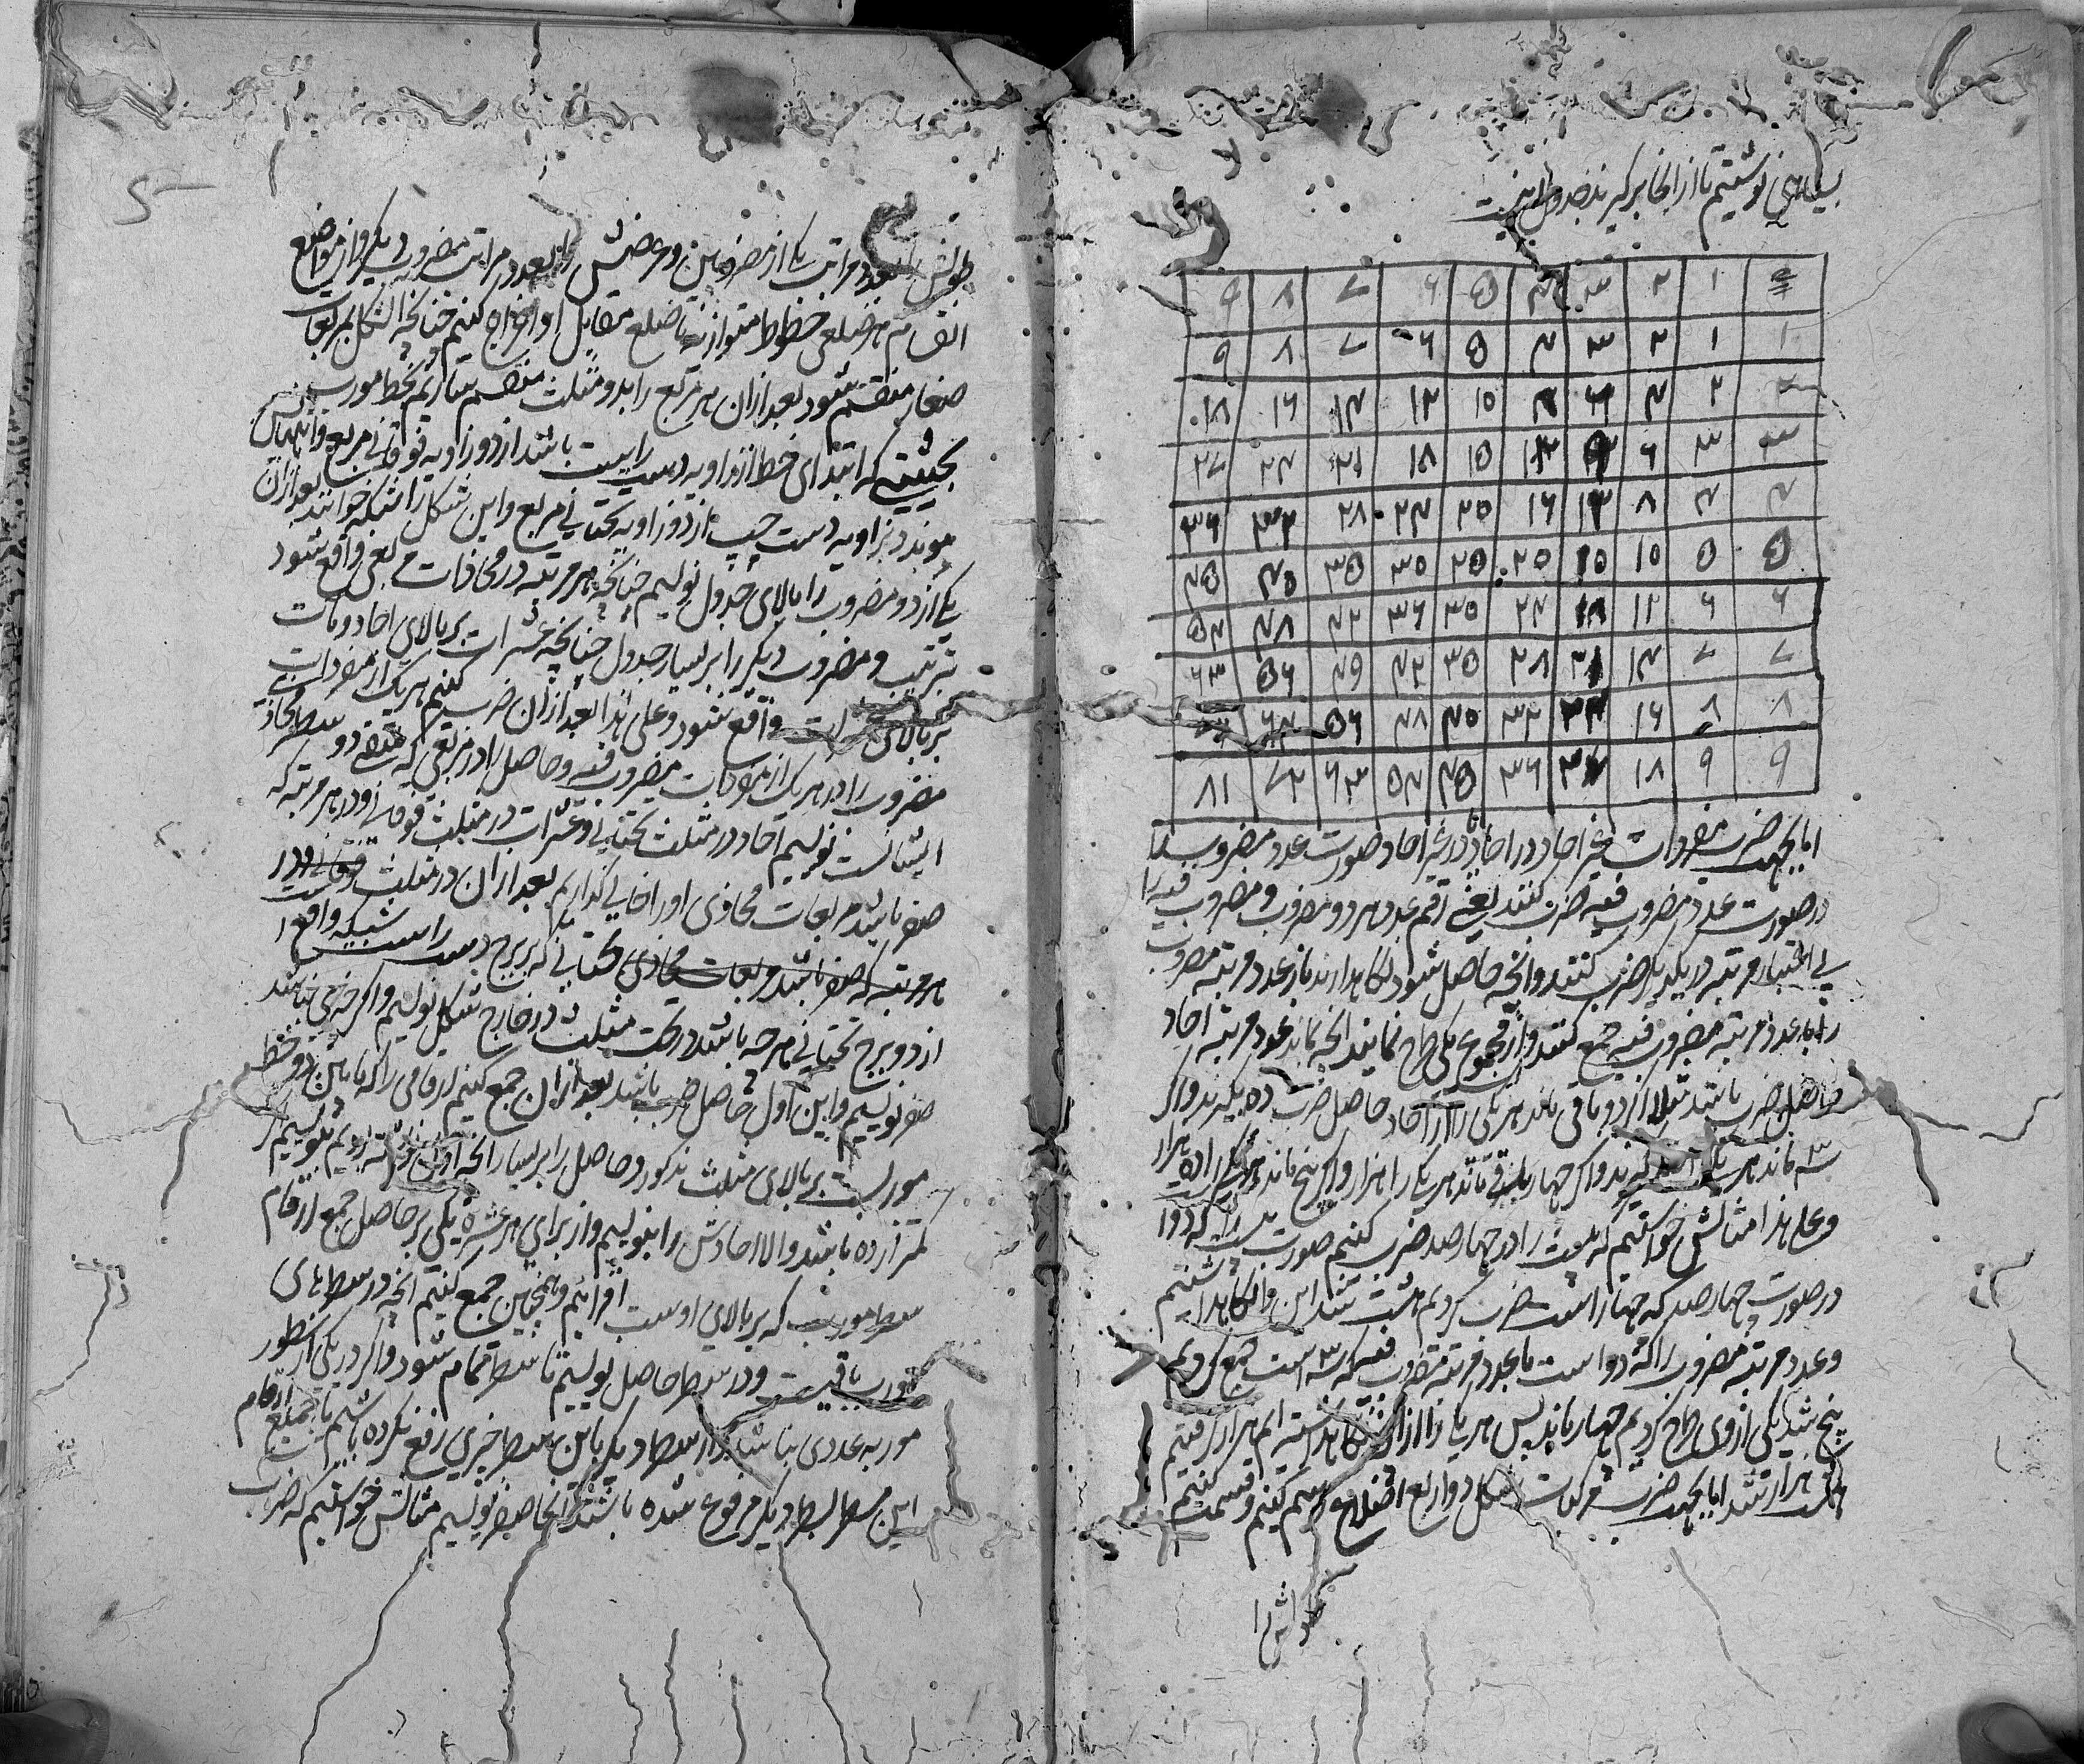 بسیاهی نوشتیم تا از آنجا برگیرند جدول اینست
۹ ۸ ۷ ۶ ۵ ۴ ۳ ۲ ۱
۹ ۸ ۷ ۶ ۵ ۴ ۳ ۲ ۱ ۱
۱۸ ۱۶ ۱۴ ۱۲ ۱۰ ۸ ۶ ۴ ۲ ۲
۲۷ ۲۴ ۲۱ ۱۸ ۱۵ ۱۲ ۹ ۶ ۳ ۳
۳۶ ۳۲ ۲۸ ۲۴ ۲۰ ۱۶ ۱۲ ۸ ۴ ۴
۴۵ ۴۰ ۳۵ ۳۰ ۲۵ ۲۰ ۱۵ ۱۰ ۵ ۵
۵۴ ۴۸ ۴۲ ۳۶ ۳۰ ۲۴ ۱۸ ۱۲ ۶ ۶
۶۳ ۵۶ ۴۹ ۴۲ ۳۵ ۲۸ ۲۱ ۱۴ ۷ ۷
۷۲ ۶۴ ۵۶ ۴۸ ۴۰ ۳۲ ۲۴ ۱۶ ۸ ۸
۸۱ ۷۲ ۶۳ ۵۴ ۴۵ ۳۶ ۲۷ ۱۸ ۹ ۹
اما بجهت ضرب مفردات غیر احاد در احاد یا در غیر احاد صورت عدد مضروب را
در صورت عدد مضروب فیه ضرب کنند یعنی رقم عدد هر دو مضروب و مضروب فیه را
بی اعتبار مرتبه در یکدیگر ضرب کنند و آنچه حاصل شود نگاهدارند باز عدد مرتبه مضروب
را با عدد مرتبه مضروب فیه جمع کنند و از مجموع یکی طرح نمایند آنچه بماند عدد مرتبه احاد
حاصل ضرب باشد مثلا اگر دو باقی ماند هر یکی را از احاد حاصل ضرب ده گیرند و اگر
سه ماند هر یک را صد گیرند و اگر چهار باقی ماند هر یک را هزار و اگر پنج ماند هر یک را ده هزار
و علی هذا مثالش خواستیم که بیست را در چهار صد ضرب کنیم صورت بیست را که دو است
در صورت چهار صد که چهار است ضرب کردیم هشت شد این را نگاهداشتیم
و عدد مرتبه مضروب را که دو است با عدد مرتبه مضروب فیه که سه است جمع کردیم
پنج شد یکی از وی طرح کردیم چهار ماند پس هر یک را از آنچه نگاهداشته ایم هزار گرفتیم
هشت هزار شد اما بجهت ضرب مرکبات شکل ذو اربع اضلاع رسم کنیم و قسمت کنیم
طولش را
طولش را بعدد مراتب یکی از مضروبین و عرضش را بعدد مراتب مضروب دیگر و از مواضع
انقسام هر ضلعی خطوط متوازیه تا ضلع مقابل او اخراج کنیم چنانچه آن شکل بمربعات
صغار منقسم شود بعد از آن هر مربع را بدو مثلث منقسم سازیم بخط مورب
بحیثیتی که ابتدای خط از زاویه دست راست باشد از دو زاویه فوقانی مربع و انتهایش
بود بزاویه دست چپ از دو زاویه تحتانی مربع و این شکل را شبکه خوانند بعد از آن
یکی از دو مضروب را بالای جدول نویسیم چنانچه هر مرتبه در محاذات مربعی واقع شود
بترتیب و مضروب دیگر را بر یسار جدول چنانچه عشرات بر بالای احاد و مات
بر بالای عشرات واقع شود و علی هذا بعد از آن ضرب کنیم هر یک از مفردات
مضروب را در هر یک از مفردات مضروب فیه و حاصل را در مربعی که ملتقی دو سطر محاذی
ایشانست نویسیم احاد در مثلث تحتانی و عشرات در مثلث فوقانی و در هر مرتبه که
صفر باشد مربعات محاذی او را خالی گذاریم بعد از آن در مثلث
هر مرتبه که صفر باشد مربعات محاذی تحتانی که بر برج دست راست شبکه واقع
از دو برج تحتانی هر چه باشد در تحت مثلث در خارج شکل نویسیم و اگر چیزی نباشد
صفر نویسیم و این اول حاصل ضرب باشد بعد از آن جمع کنیم ارقامی را که مابین دو خط
مورب بر بالای مثلث مذکور و حاصل را بر یسار آنچه اول نوشته بودیم نویسیم اگر
کمتر از ده باشد و الا احادش را بنویسیم و از برای هر عشره یکی بر حاصل جمع ارقام
سطر مورب که بر بالای اوست افزائیم و همچنین جمع کنیم آنچه در سطرهای
مورب باقیست و در سطر حاصل نویسیم تا سطر تمام شود و اگر در یکی از سطور
موربه عددی نباشد و از سطر دیگر باین سطر چیزی رفع نکرده باشیم یا جمیع ارقام
این سطر بسطر دیگر مرفوع شده باشد آنجا صفر نویسیم مثالش خواستیم که ضرب